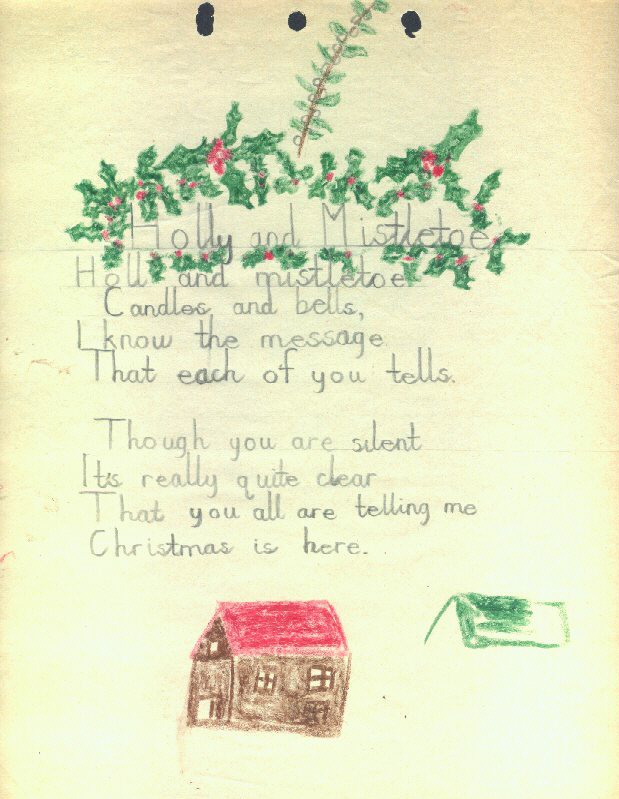 Holly and Mistletoe
Holl and mistletoe
Candles and bells,
I know the message
That each of you tells.
Though you are silent
It's really quite clear
That you all are telling me
Christmas is here.